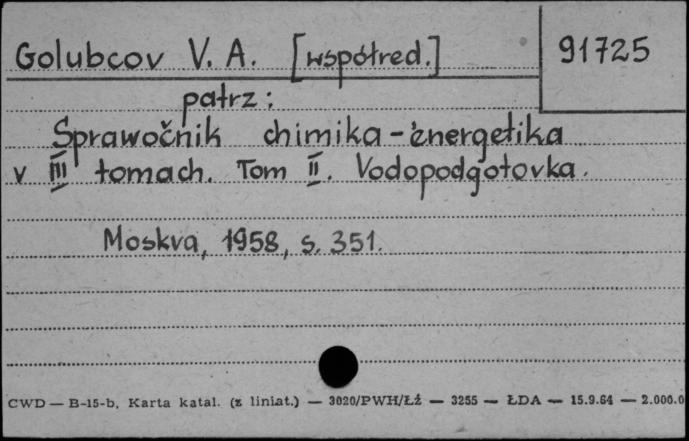 Golubcov V. A. [współred.] 91725
patrz:
Sprawočnik chimika-ènergetika
v III tomach. Tom II. Vodopodgotovka.
Moskva, 1958, s. 351.
CWD — B-15-b, Karta katal. (z liniat.) — 3020/PWH/Łź — 3255 — ŁDA — 15.9.64 — 2.000.0